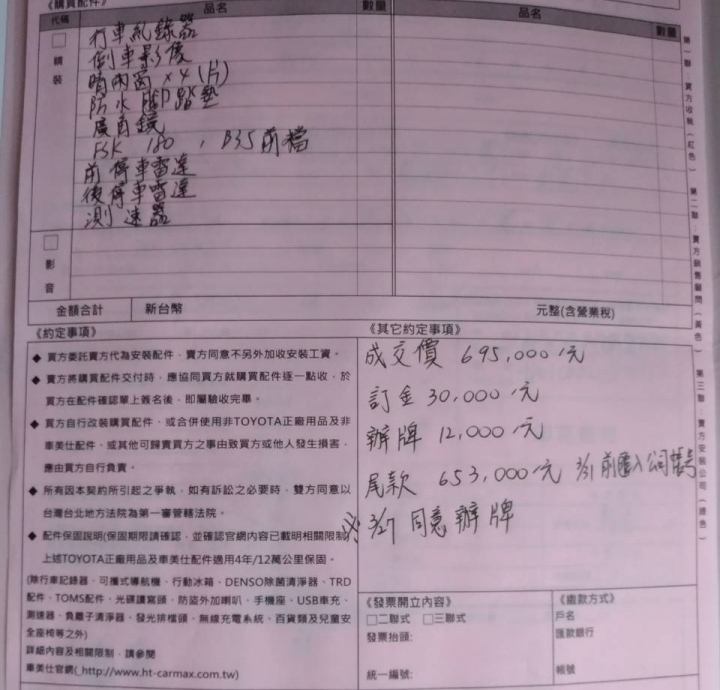 《購買配件》
代碼 品名 數量 品名 數量
精裝
行車紀錄器
倒車影像
晴雨窗 x4 (片)
防水腳踏墊
廣角鏡
FSK 180 , B35前檔
前停車雷達
後停車雷達
測速器
影音
金額合計 新台幣 元整(含營業稅)
《約定事項》
◆ 買方委託賣方代為安裝配件，賣方同意不另外加收安裝工資。
◆ 賣方將購買配件交付時，應協同買方就購買配件逐一點收，於
買方在配件確認單上簽名後，即屬驗收完畢。
◆ 買方自行改裝購買配件，或合併使用非TOYOTA正廠用品及非
車美仕配件，或其他可歸責買方之事由致買方或他人發生損害，
應由買方自行負責。
◆ 所有因本契約所引起之爭執，如有訴訟之必要時，雙方同意以
台灣台北地方法院為第一審管轄法院。
◆ 配件保固說明(保固期限請確認，並確認官網內容已載明相關限制
上述TOYOTA正廠用品及車美仕配件適用4年/12萬公里保固。
(除行車記錄器、可攜式導航機、行動冰箱、DENSO除菌清淨器、TRD
配件、TOMS配件、光碟讀寫頭、防盜外加喇叭、手機座、USB車充、
測速器、負離子清淨器、發光排檔頭、無線充電系統、百貨類及兒童安
全座椅等之外)
詳細內容及相關限制，請參閱
車美仕官網(_http://www.ht-carmax.com.tw)
《其它約定事項》
成交價 695,000元
訂金 30,000元
辦牌 12,000元
尾款 653,000元 3/1前匯入公司帳号
※ 3/27 同意辦牌
《發票開立內容》
□二聯式 □三聯式
發票抬頭:
統一編號:
《繳款方式》
戶名
匯款銀行
帳號
第一聯：買方收執(紅色) 第二聯：賣方銷售顧問(黃色) 第三聯：賣方安裝公司(綠色)